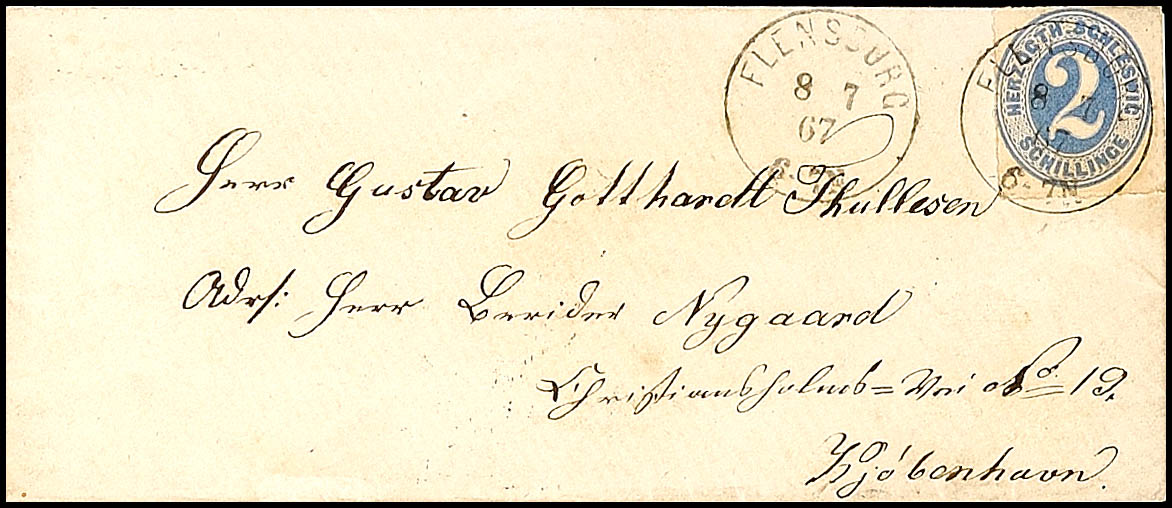 FLENSBURG
8 7
67
6-7N
HERZOGTH. SCHLESWIG.
2
SCHILLINGE
FLENSBURG
8 7
67
6-7N
Herr Gustav Gotthardt Thullesen
Adrs: Herr Berider Nygaard
Christiansholms=Vei No. 19.
Kjóbenhavn.